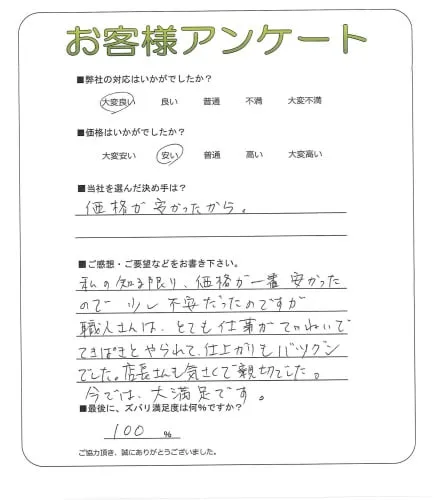 お客様アンケート
■弊社の対応はいかがでしたか?
大変良い 良い 普通 不満 大変不満
■価格はいかがでしたか?
大変安い 安い 普通 高い 大変高い
■当社を選んだ決め手は?
価格が安かったから。
■ご感想・ご要望などをお書き下さい。
私の知る限り、価格が一番安かった
ので少し不安だったのですが
職人さんは、とても仕事がていねいで
てきぱきとやられて、仕上がりもバツグン
でした。店長さんも気さくで親切でした。
今では、大満足です。
■最後に、ズバリ満足度は何%ですか?
100 %
ご協力頂き、誠にありがとうございました。